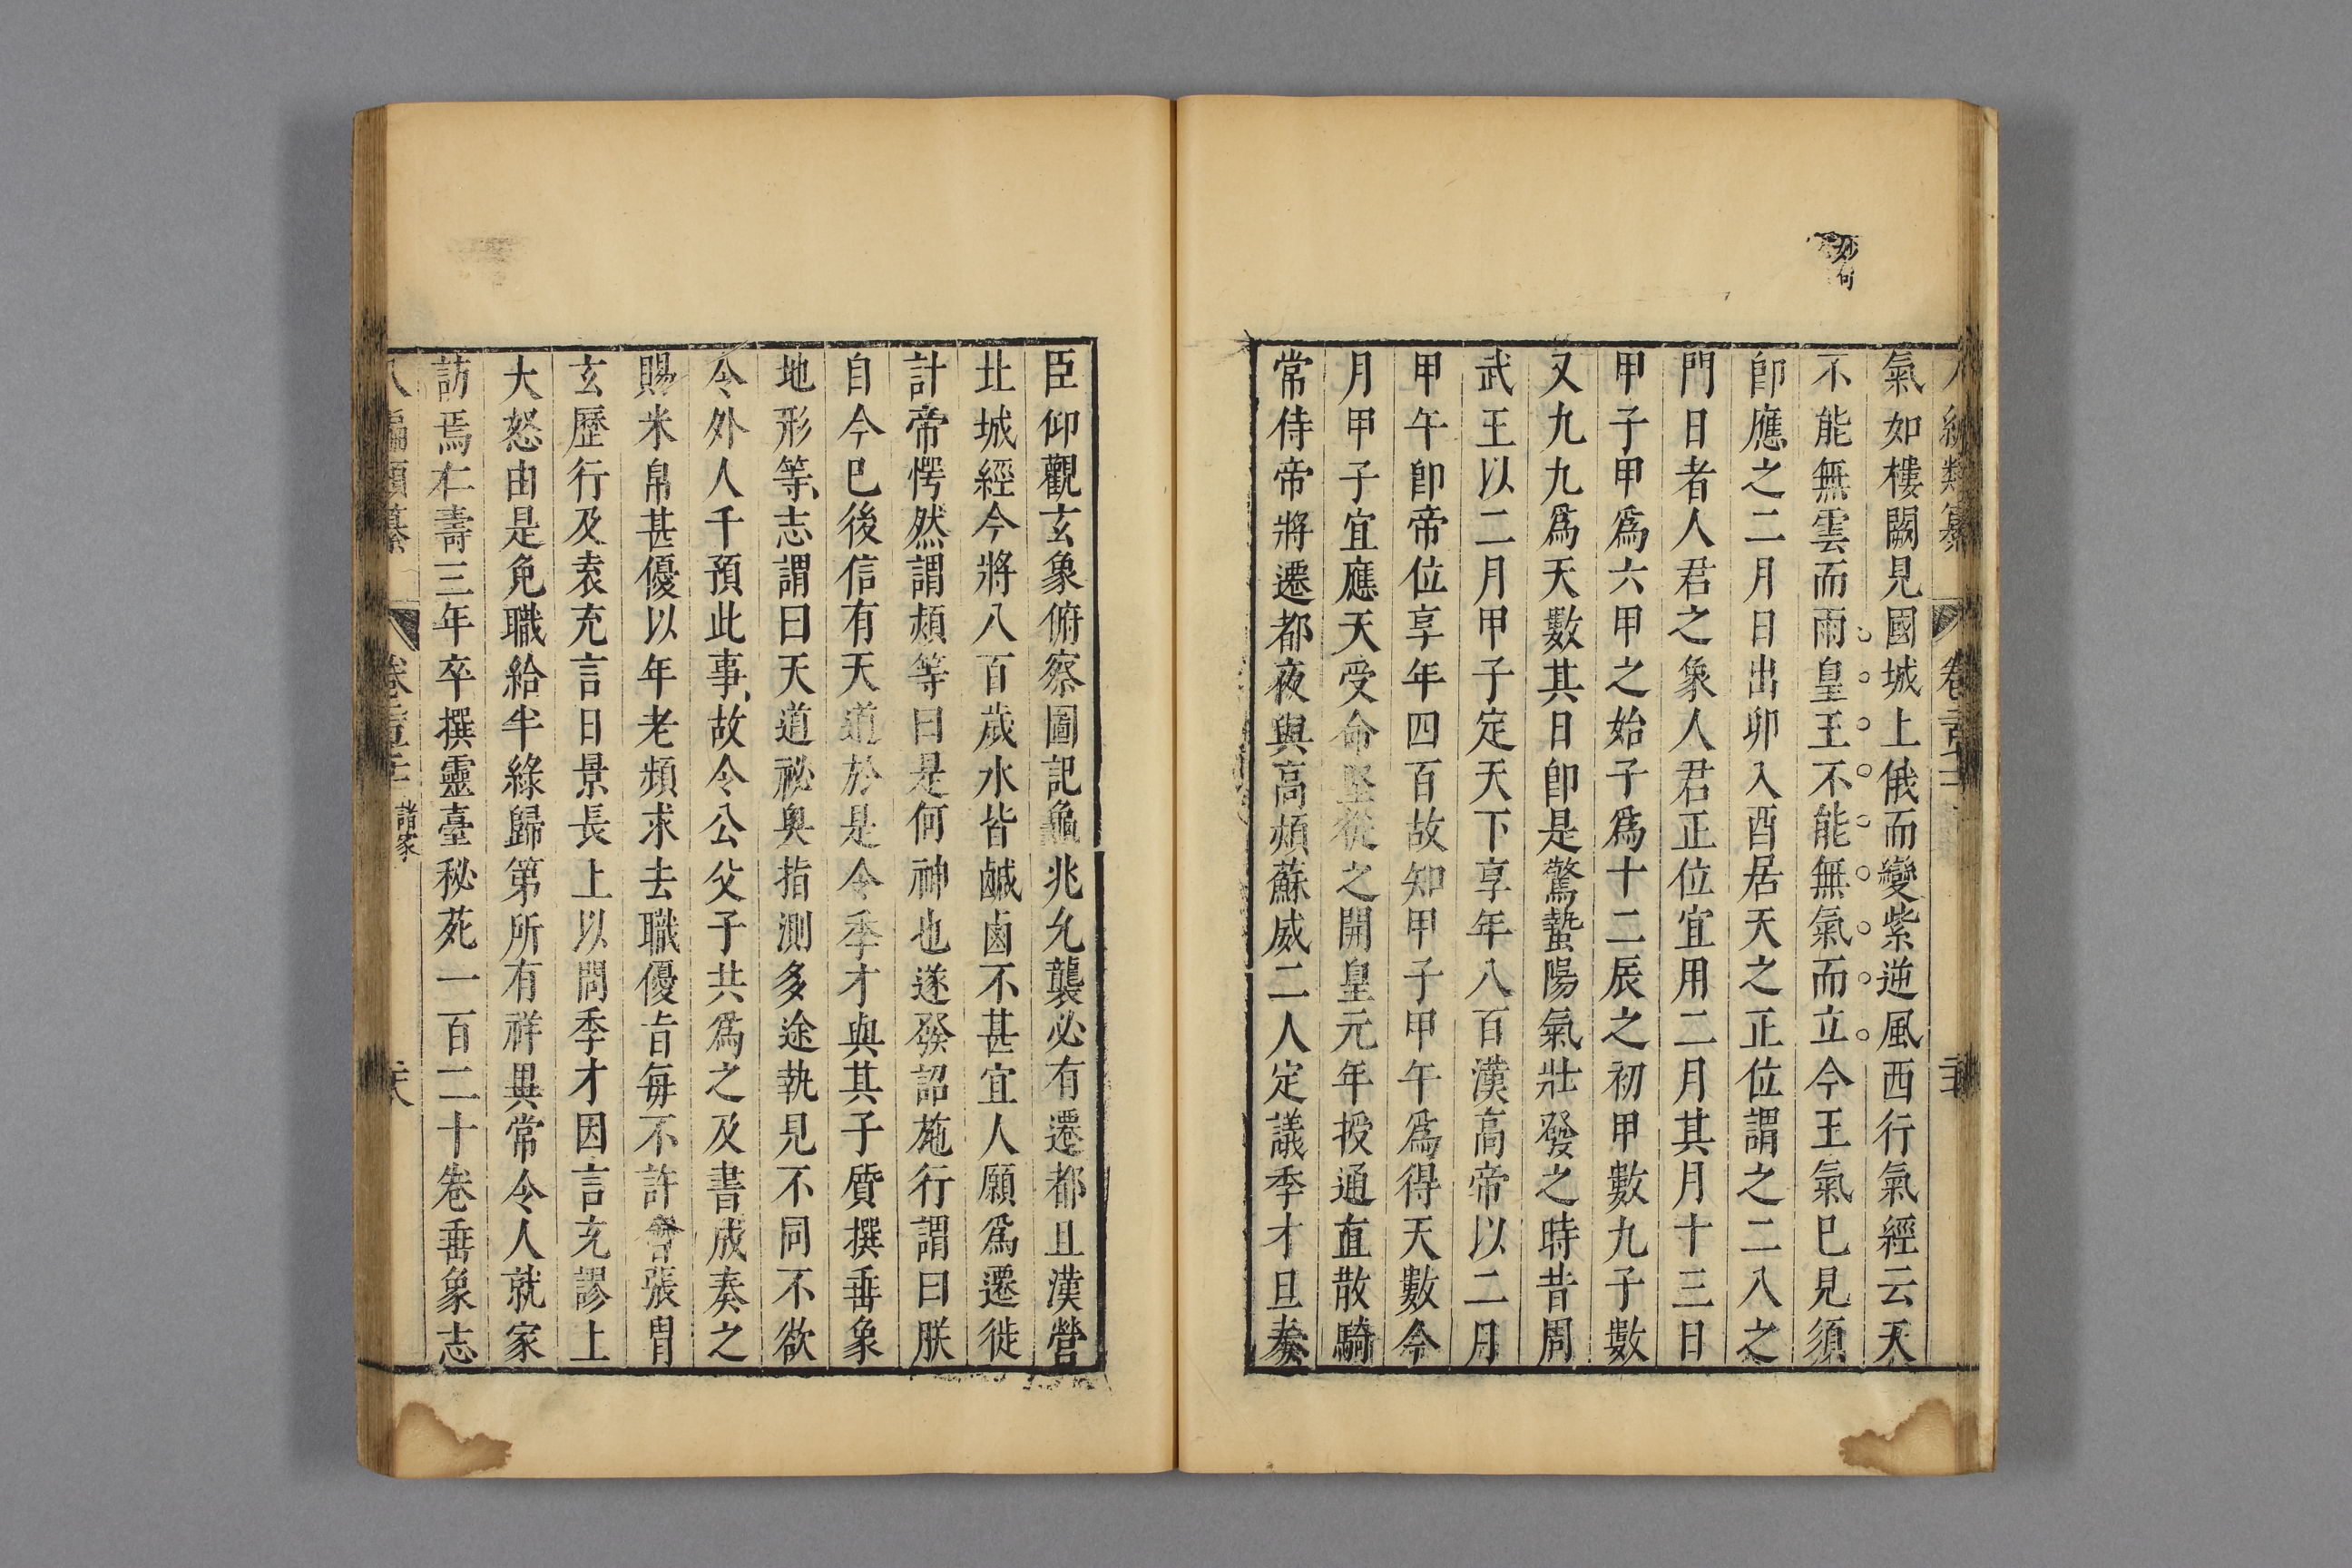 妙句
氣如樓闕見國城上俄而變紫逆風西行氣經云天
不能無雲而雨皇王不能無氣而立今王氣巳見須
卽應之二月日出卯入酉居天之正位謂之二八之
門日者人君之象人君正位宜用二月其月十三日
甲子甲爲六甲之始子爲十二辰之初甲數九子數
又九九爲天數其日卽是驚蟄陽氣壯發之時昔周
武王以二月甲子定天下享年八百漢高帝以二月
甲午卽帝位享年四百故知甲子甲午爲得天數今
月甲子宜應天受命堅從之開皇元年授通直散騎
常侍帝將遷都夜與高熲蘇威二人定議季才旦奏
臣仰觀玄象俯察圖記龜兆允襲必有遷都且漢營
此城經今將八百歲水皆鹹鹵不甚宜人願爲遷徙
計帝愕然謂熲等曰是何神也遂發詔施行謂曰朕
自今巳後信有天道於是令季才與其子質撰垂象
地形等志謂曰天道祕奧指測多途執見不同不欲
令外人千預此事故令公父子共爲之及書成奏之
賜米帛甚優以年老頻求去職優旨每不許會張冑
玄歷行及袁充言日景長上以問季才因言充謬上
大怒由是免職給半綠歸第所有祥異常令人就家
訪焉仁壽三年卒撰靈臺秘苑一百二十卷垂象志
八編類纂 卷 諸家